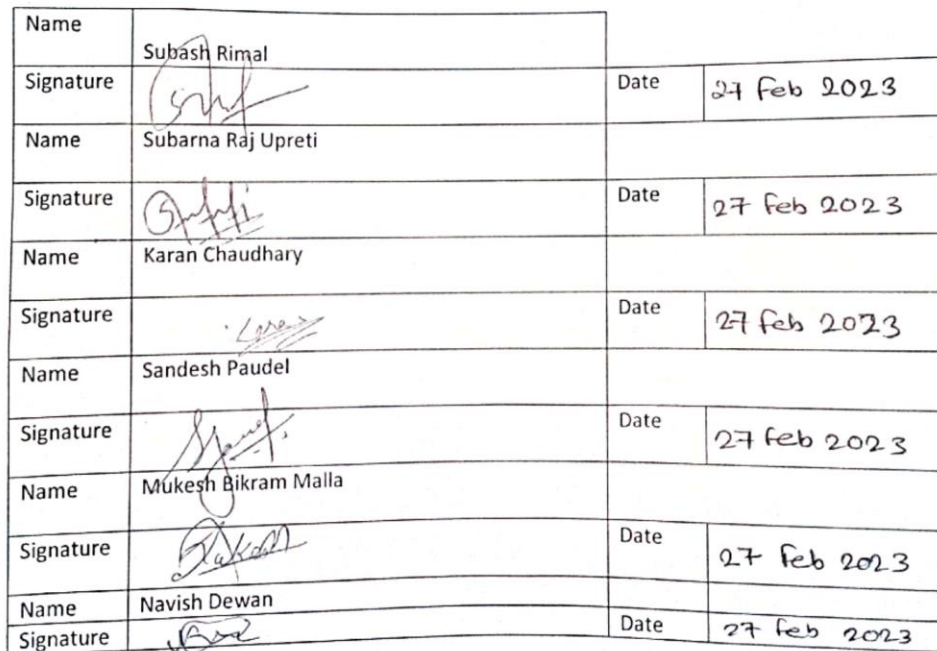 Name
Subash Rimal
Signature Date 27 Feb 2023
Name Subarna Raj Upreti
Signature Date 27 Feb 2023
Name Karan Chaudhary
Signature Date 27 Feb 2023
Name Sandesh Paudel
Signature Date 27 Feb 2023
Name Mukesh Bikram Malla
Signature Date 27 Feb 2023
Name Navish Dewan
Signature Date 27 Feb 2023